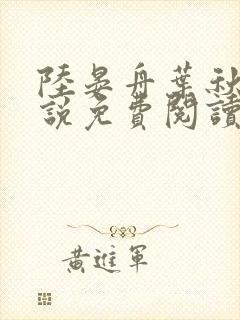 陸晏舟葉秋
說免費閱讀
黃進軍